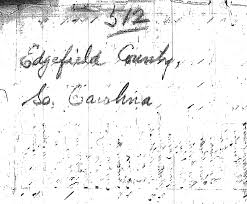 512
Edgefield County,
So. Carolina